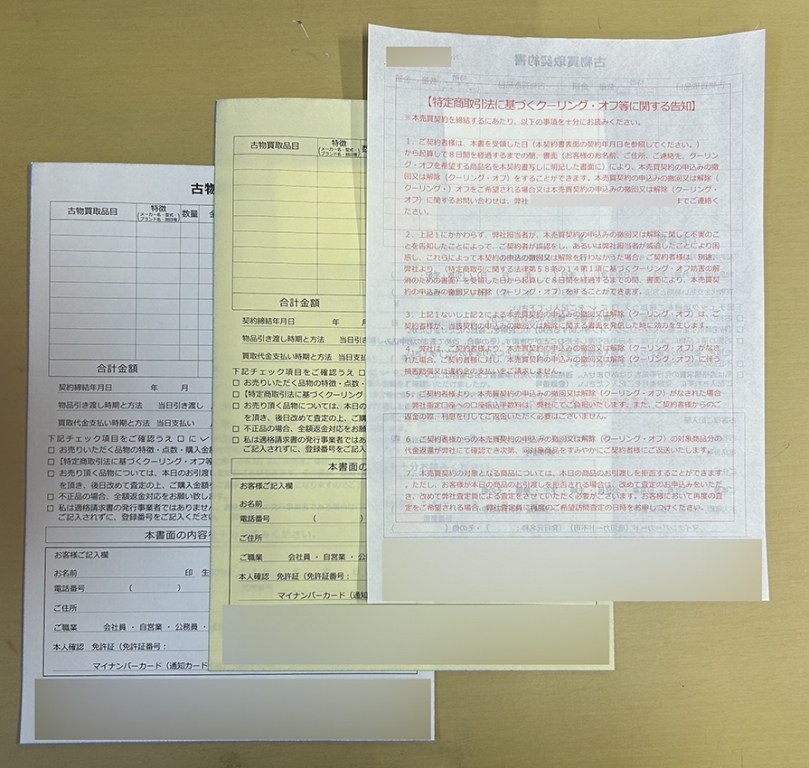 古物
古物買取品目
特徴
(メーカー名・型式・ブランド名・時計等)
数量
合計金額
契約締結年月日 年 月
物品引き渡し時期と方法 当日引き渡し
買取代金支払い時期と方法 当日支払い
下記チェック項目をご確認うえ □ に ✓
□ お売りいただく品物の特徴・点数・購入金
□ 【特定商取引法に基づくクーリング・オフ等
□ お売り頂く品物については、本日のお引渡し
を頂き、後日改めて査定の上、ご購入金額を
□ 不正品の場合、全額返金対応をお願い致し
□ 私は適格請求書の発行事業者ではありません
ご記入されずに、登録番号をご記入ください
本書面の内容を
お客様ご記入欄
お名前 印 生
電話番号 ( )
ご住所
ご職業 会社員 ・ 自営業 ・ 公務員 ・
本人確認 免許証(免許証番号:
マイナンバーカード(通知カード
古物買取品目
特徴
合計金額
契約締結年月日 年 月
物品引き渡し時期と方法 当日引
買取代金支払い時期と方法 当日支
下記チェック項目をご確認うえ □
□ お売りいただく品物の特徴・点数・
□ 【特定商取引法に基づくクーリング・
□ お売り頂く品物については、本日の
を頂き、後日改めて査定の上、ご購
□ 不正品の場合、全額返金対応をお願
□ 私は適格請求書の発行事業者ではあ
ご記入されずに、登録番号をご記入
本書面の
お客様ご記入欄
お名前
電話番号 (
ご住所
ご職業 会社員 ・ 自営業 ・ 公
本人確認 免許証(免許証番号:
マイナンバーカード(通知
古物買取契約書
【特定商取引法に基づくクーリング・オフ等に関する告知】
※本売買契約を締結するにあたり、以下の事項を十分にお読みください。
1.ご契約者様は、本書を受領した日(本契約書表面の契約年月日を参照してください。)
から起算して8日間を経過するまでの間、書面(お客様のお名前、ご住所、ご連絡先、クーリン
グ・オフを希望する商品名を本契約書写しに明記した書面)により、本売買契約の申込みの撤
回又は解除(クーリング・オフ)をすることができます。本売買契約の申込みの撤回又は解除
(クーリング・)オフをご希望される場合又は本売買契約の申込みの撤回又は解除(クーリング・
オフ)に関するお問い合わせは、弊社 までご連絡く
ださい。
2.上記1にかかわらず、弊社担当者が、本売買契約の申込みの撤回又は解除に関して不実のこ
とを告知したことによって、ご契約者が誤認をし、あるいは弊社担当者が威迫したことにより困
惑し、これらによって本契約の申込の撤回又は解除を行わなかった場合、ご契約者様は、別途、
弊社より、(特定商取引に関する法律第58条の14第1項に基づくクーリング・オフ妨害の解
消のための書面)を受領した日から起算して8日間を経過するまでの間、書面により、本売買契
約の申込みの撤回又は解除(クーリング・オフ)をすることができます。
3.上記1ないし上記2による本売買契約の申込みの撤回又は解除(クーリング・オフ)は、ご
契約者様が、当該契約の申込みの撤回又は解除に関する書面を発信した時に効力を生じます。
4.弊社は、ご契約者様より、本売買契約の申込みの撤回又は解除(クーリング・オフ)がなさ
れた場合、ご契約者様に対し、本売買契約の申込みの撤回又は解除(クーリング・オフ)に伴う
損害賠償又は違約金の支払いをご請求しません。
5.ご契約者様より、本売買契約の申込みの撤回又は解除(クーリング・オフ)がなされた場合、
弊社指定口座への口座振込手数料は、弊社にてご負担いたします。また、ご契約者様からのご返
金の際、利息を付してご返還いただく必要はございません。
6.ご契約者様からの本売買契約の申込みの撤回又は解除(クーリング・オフ)の対象商品分の
代金返還が弊社にて確認でき次第、同対象商品をすみやかにご契約者様にご返送いたします。
7.本売買契約の対象となる商品については、本日の商品のお引渡しを拒否することができます。
ただし、お客様が本日の商品のお引渡しを拒否される場合は、改めて査定のお申込みをいただ
き、改めて弊社査定員による査定をさせていただく必要がございます。お客様において再度の査
定をご希望される場合、弊社査定員に再度のご希望訪問査定の日時をお申しつけください。